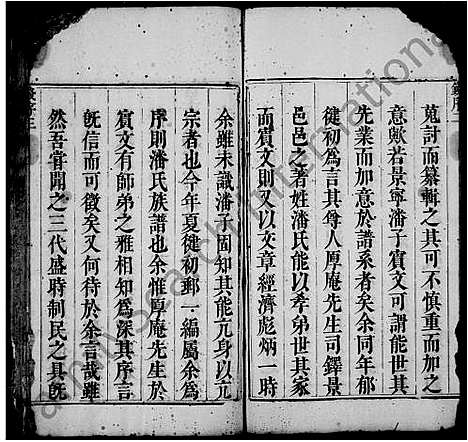 蒐討而纂輯之其可不慎重而加之
意歟若景寧潘子賓文可謂能世其
先業而加意於譜系者矣余同年郁
健初為言其尊人厚庵先生司鐸景
邑邑之著姓潘氏能以孝弟世其家
而賓文則又以文章經濟彪炳一時
余雖未識潘子固知其能亢身以亢
宗者也今年夏健初郵一編屬余為
序則潘氏族譜也余惟厚庵先生於
賓文有師弟之雅相知為深其序言
旣信而有徵矣又何待於余言哉雖
然吾嘗聞之三代盛時制民之具旣